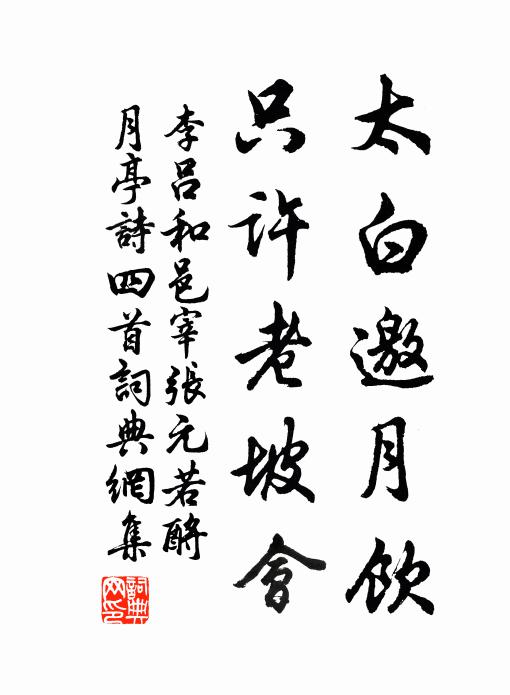 太白邀月飲
只許老坡會
李呂和邑宰張元若酹
月亭詩四首詞典網集
詞典網印